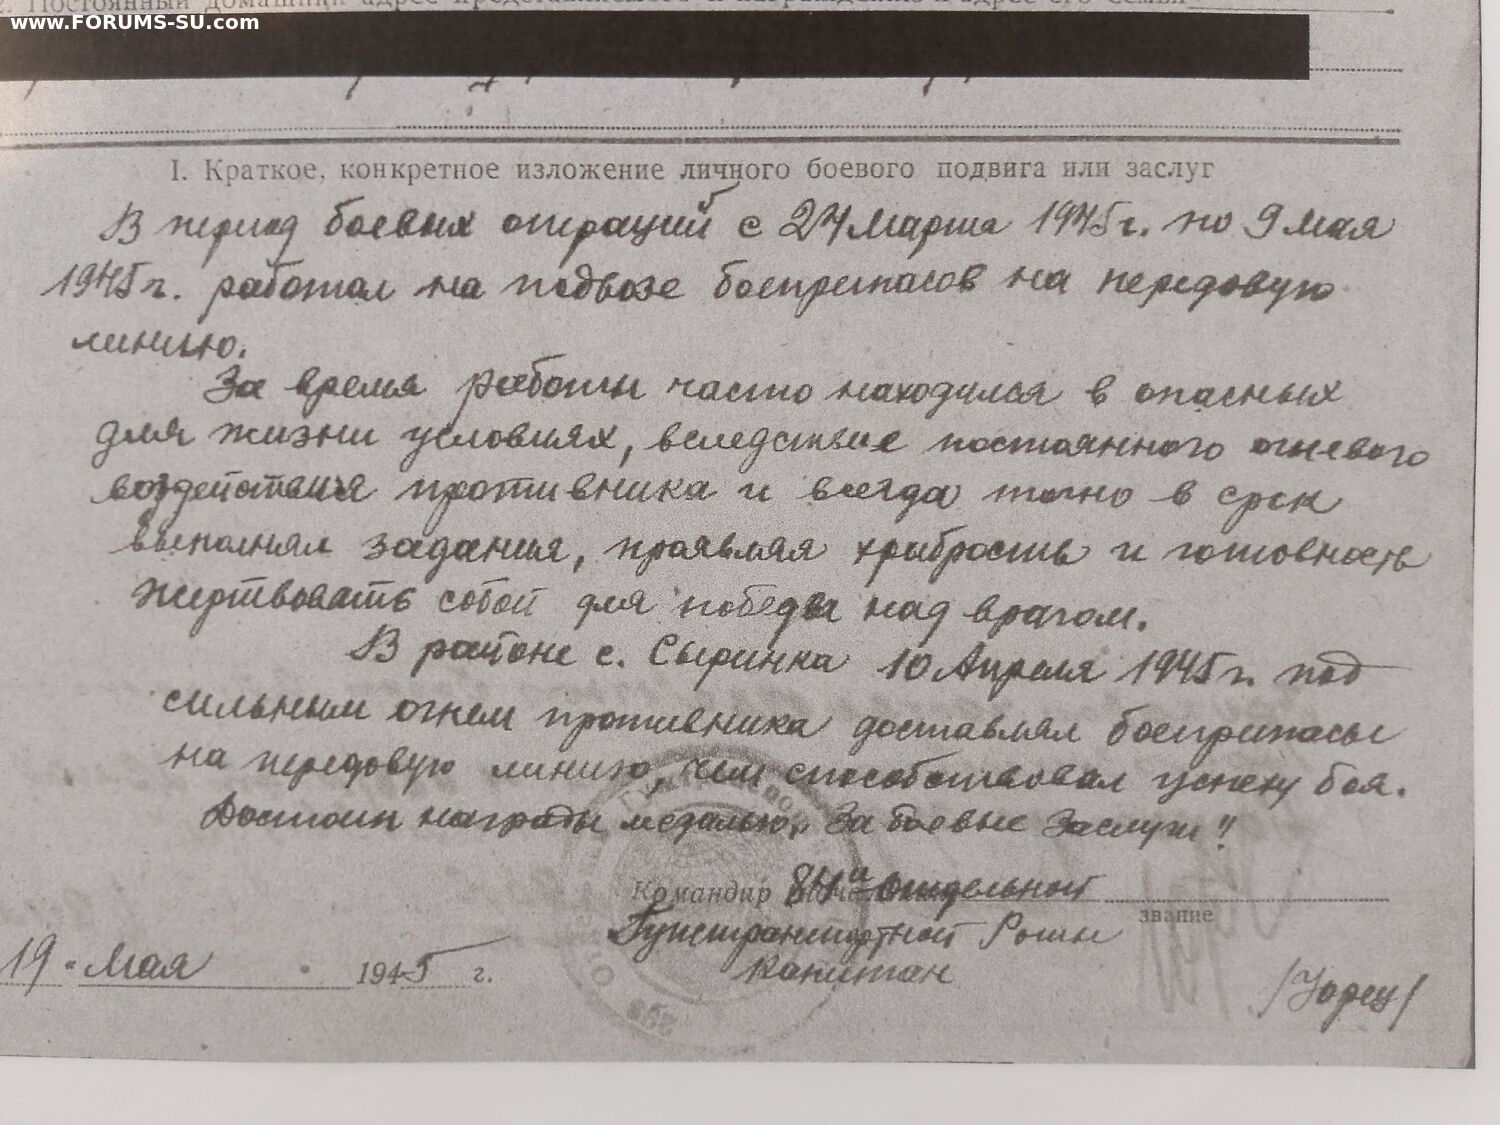 www.FORUMS-SU.com
2. Постоянный домашний адрес представляемого к награждению и адрес его семьи
I. Краткое, конкретное изложение личного боевого подвига или заслуг
В период боевых операций с 27 Марта 1945 г. по 9 мая
1945 г. работал на подвозе боеприпасов на передовую
линию.
За время работы часто находился в опасных
для жизни условиях, вследствие постоянного огневого
воздействия противника и всегда точно в срок
выполнял задания, проявляя храбрость и готовность
жертвовать собой для победы над врагом.
В районе с. Сыринка 10 Апреля 1945 г. под
сильным огнем противника доставлял боеприпасы
на передовую линию, чем способствовал успеху боя.
Достоин награды медалью „За боевые Заслуги"
Командир 84й Отдельной
звание
Гужтранспортной Роты
19 " Мая 1945 г.
Капитан